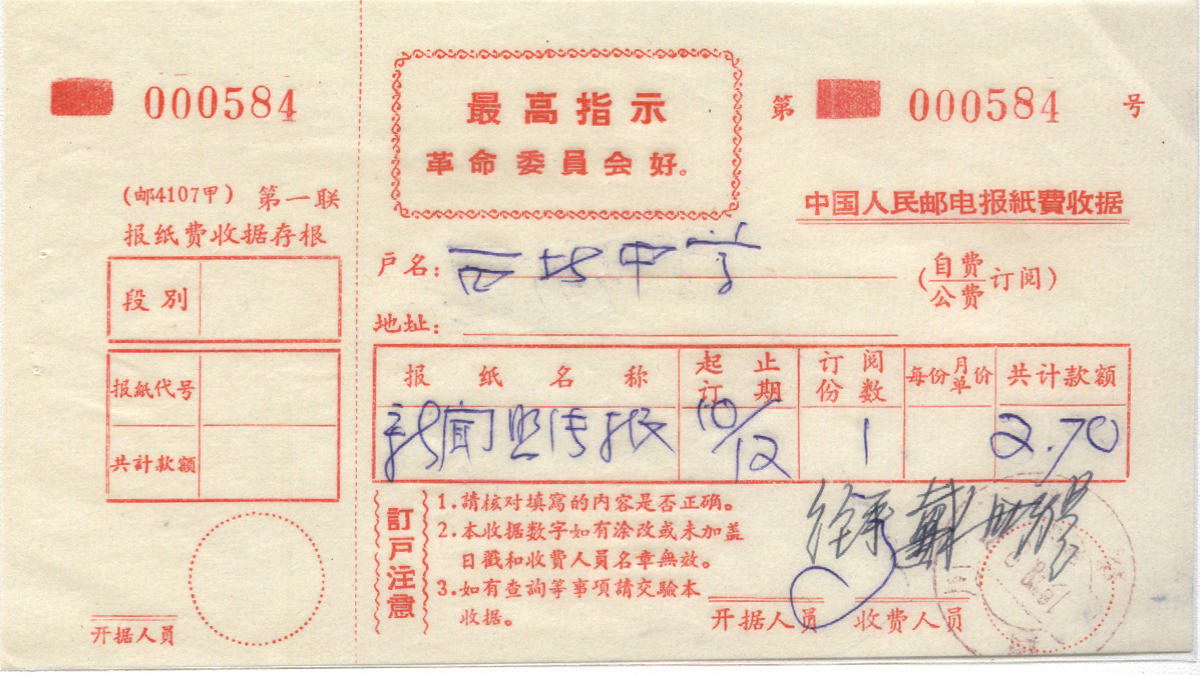 000584
(邮4107甲) 第一联
报纸费收据存根
段别
报纸代号
共計款额
开据人员
最高指示
革命委員会好。
第 000584 号
中国人民邮电报紙費收据
戶名: 中学
(自费/公费订阅)
地址:
报纸名称 起止订期 订阅份数 每份月单价 共计款额
新闻照片报 10/12 1 2.70
訂戶注意
1.請核对填寫的内容是否正确。
2.本收据数字如有涂改或未加盖
日戳和收费人员名章無效。
3.如有查詢等事項請交驗本
收据。
开据人员 收费人员